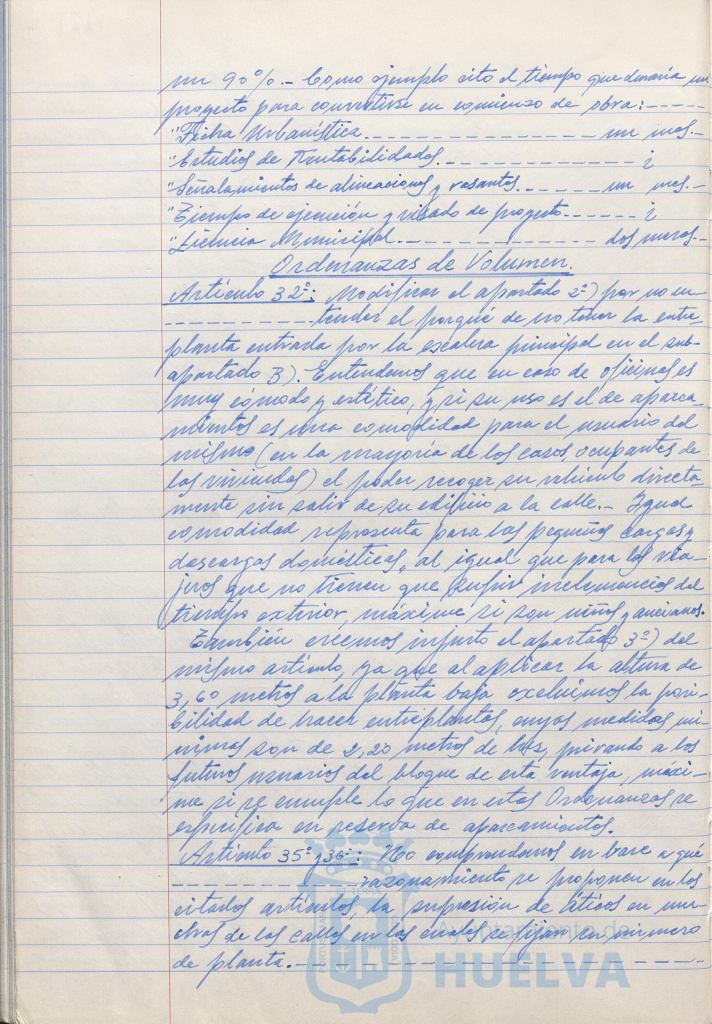 un 90%.- Como ejemplo cito el tiempo que duraría un
proyecto para convertirse en comienzo de obra:-----
"Ficha Urbanística.------------------ un mes.-
"Estudios de Rentabilidades.--------------- ¿
"Señalamientos de alineaciones y rasantes.------ un mes.-
"Tiempo de ejecución y visado de proyecto.------ ¿
"Licencia Municipal.----------------- dos meses.-
Ordenanzas de Volumen.
Artículo 32º: Modificar el apartado 2º) por no en-
------------tender el porqué de no tener la entre-
planta entrada por la escalera principal en el sub-
apartado 3). Entendemos que en caso de oficinas es
muy cómodo y estético, y si su uso es el de aparca-
mientos es una comodidad para el usuario del
mismo (en la mayoría de los casos, ocupantes de
las viviendas) el poder recoger su vehículo directa-
mente sin salir de su edificio a la calle.- Igual
comodidad representa para las pequeñas cargas y
descargas domésticas, al igual que para los via-
jeros que no tienen que sufrir inclemencias del
tiempo exterior, máxime si son niños y ancianos.
También creemos injusto el apartado 3º) del
mismo artículo, ya que al aplicar la altura de
3,60 metros a la planta baja excluimos la posi-
bilidad de hacer entreplantas, cuyas medidas mí-
nimas son de 2,20 metros de luz, privando a los
futuros usuarios del bloque de esta ventaja, máxi-
me si se cumple lo que en estas Ordenanzas se
especifica en reserva de aparcamientos.
Artículo 35º y 36º: No comprendemos en base a qué
---------------razonamiento se proponen en los
citados artículos, la supresión de áticos en mu-
chas de las calles en las cuales se fijan en número
de planta.------------------------
Ayuntamiento de
HUELVA